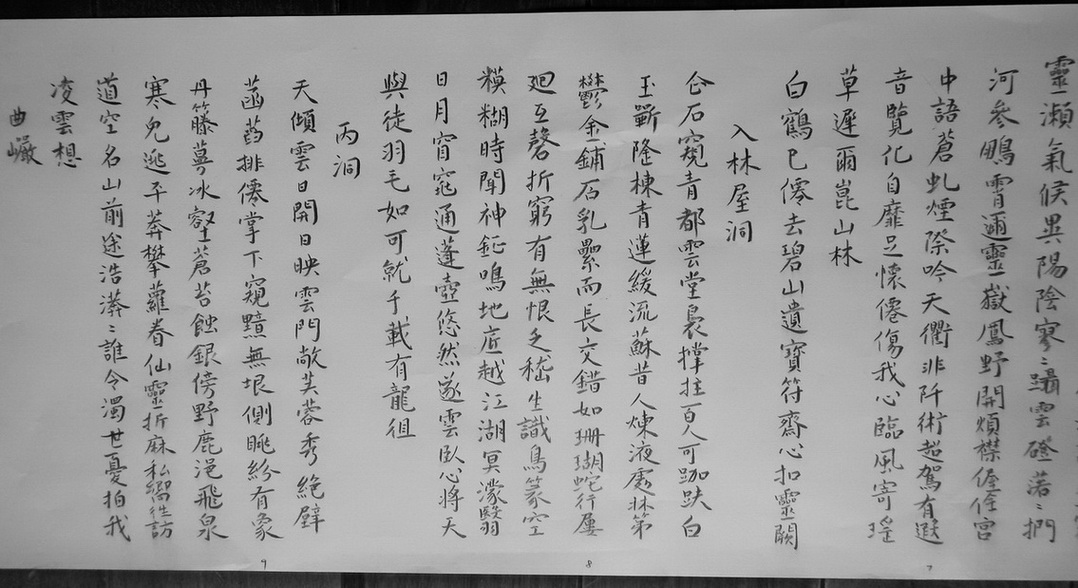 靈瀨氣候異陽陰寥〻躡雲磴落〻捫
河參鵬霄邇靈嶽鳳野開煩襟偓佺宮
中語蒼虬煙際吟天衢非阡術超駕有遐
音覽化自靡足懷僊傷我心臨風寄瑤
草遲爾崑山林
白鶴已僊去碧山遺寶符齋心扣靈闕
入林屋洞
仚石窺青都雲堂裊撐拄百人可跏趺白
玉斲隆棟青蓮緩流蘇昔人煉液處牀第
鬱金鋪石乳纍而長交錯如珊瑚蛇行屢
迴互磬折窮有無恨乏嵇生識鳥篆空
模糊時聞神鉦鳴地底越江湖冥濛翳
日月窅窕通蓬壺悠然遂雲臥心將天
與徒羽毛如可就千載有龍徂
丙洞
天傾雲日開日映雲門敞芙蓉秀絕壁
菡萏排僊掌下窺黯無垠側眺紛有象
丹籐蔓冰壑蒼苔蝕銀傍野鹿浥飛泉
寒兔逃平莽攀蘿眷仙靈折麻私嚮往訪
道空名山前途浩漭〻誰令濁世憂拍我
凌雲想
曲巘
7
8
9